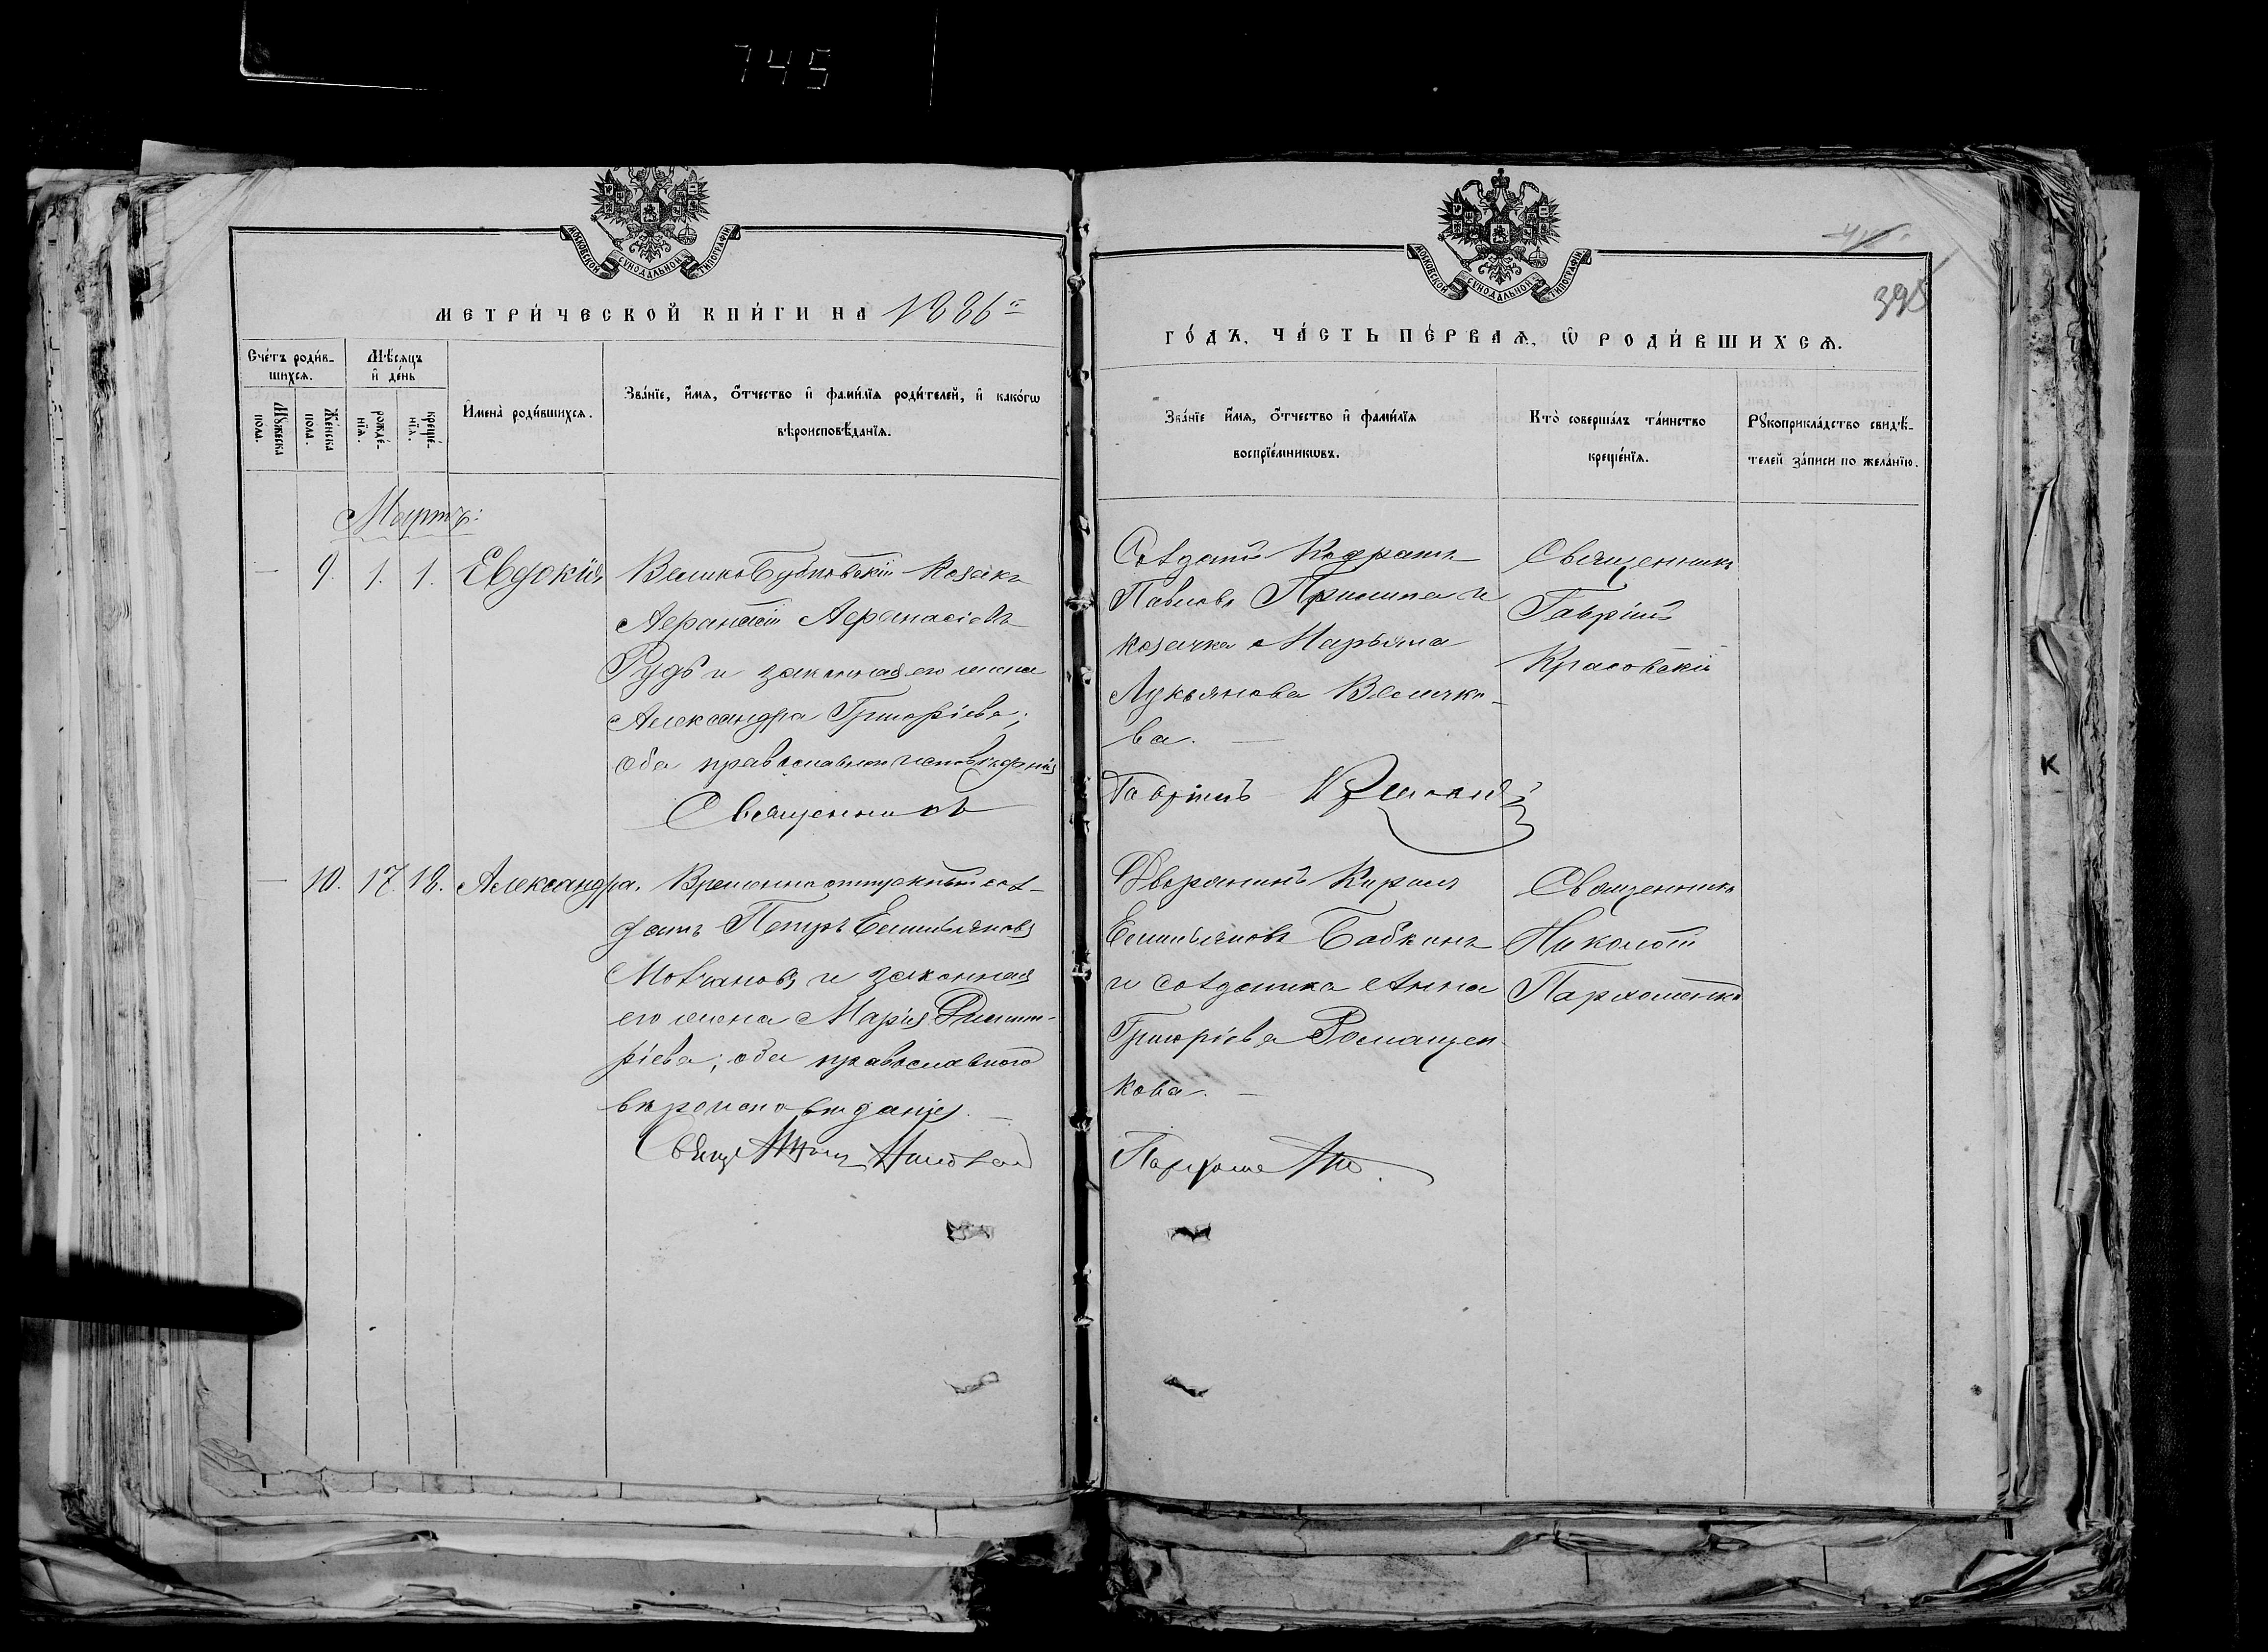 745
МОСКОВСКОЙ СУНОДАЛЬНОЙ ТИПОГРАФІИ
МЕТРИ́ЧЕСКОЙ КНИ́ГИ НА 1886
Сче́тъ роди́в-
шихсѧ.
Мѣ́сѧцъ
и҆ де́нь
Мꙋ́жеска
пола.
Же́нска
пола.
рожде́-
нїѧ.
креще́-
нїѧ.
И҆мена̀ роди́вшихсѧ.
Зва́нїе, и҆́мѧ, ѻ҆́тчество и҆ фами́лїѧ роди́телей, и҆ како́гѡ
вѣроисповѣ́данїѧ.
Мартъ:
— 9. 1. 1. Евдокія
Козакъ
Афанасій Афанасіевъ
Рудь и законная его жена
Александра Григоріева;
оба православнаго исповѣданія
Священникъ
— 10. 17. 18. Александра.
Временно отпускный сол-
датъ Петръ Емиліановъ
Молчановъ и законная
его жена Марія Димит-
ріева; оба православного
вѣроисповѣданія. —
Николай
МОСКОВСКОЙ СУНОДАЛЬНОЙ ТИПОГРАФІИ
395
ГО́ДЪ, ЧА́СТЬ ПЕ́РВАѦ, Ѡ҆ РОДИ́ВШИХСѦ.
Зва́нїе и҆́мѧ, ѻ҆́тчество и҆ фами́лїѧ
воспрїе́мникѡвъ.
Кто̀ соверша́лъ та́инство
креще́нїѧ.
Рꙋкоприкла́дство свидѣ́-
телей за́писи по жела́нїю.
Солдатъ Кодратъ
Павловъ и
козачка Марьяна
Лукьянова Величко-
ва. —
Гавріилъ
Священникъ
Гавріилъ
Красовскій
Дворянинъ Кирилъ
Емиліановъ Бабкинъ
и солдатка Анна
Григоріева Романцен-
кова. —
Пархоменко.
Священникъ
Николай
Пархоменко
К